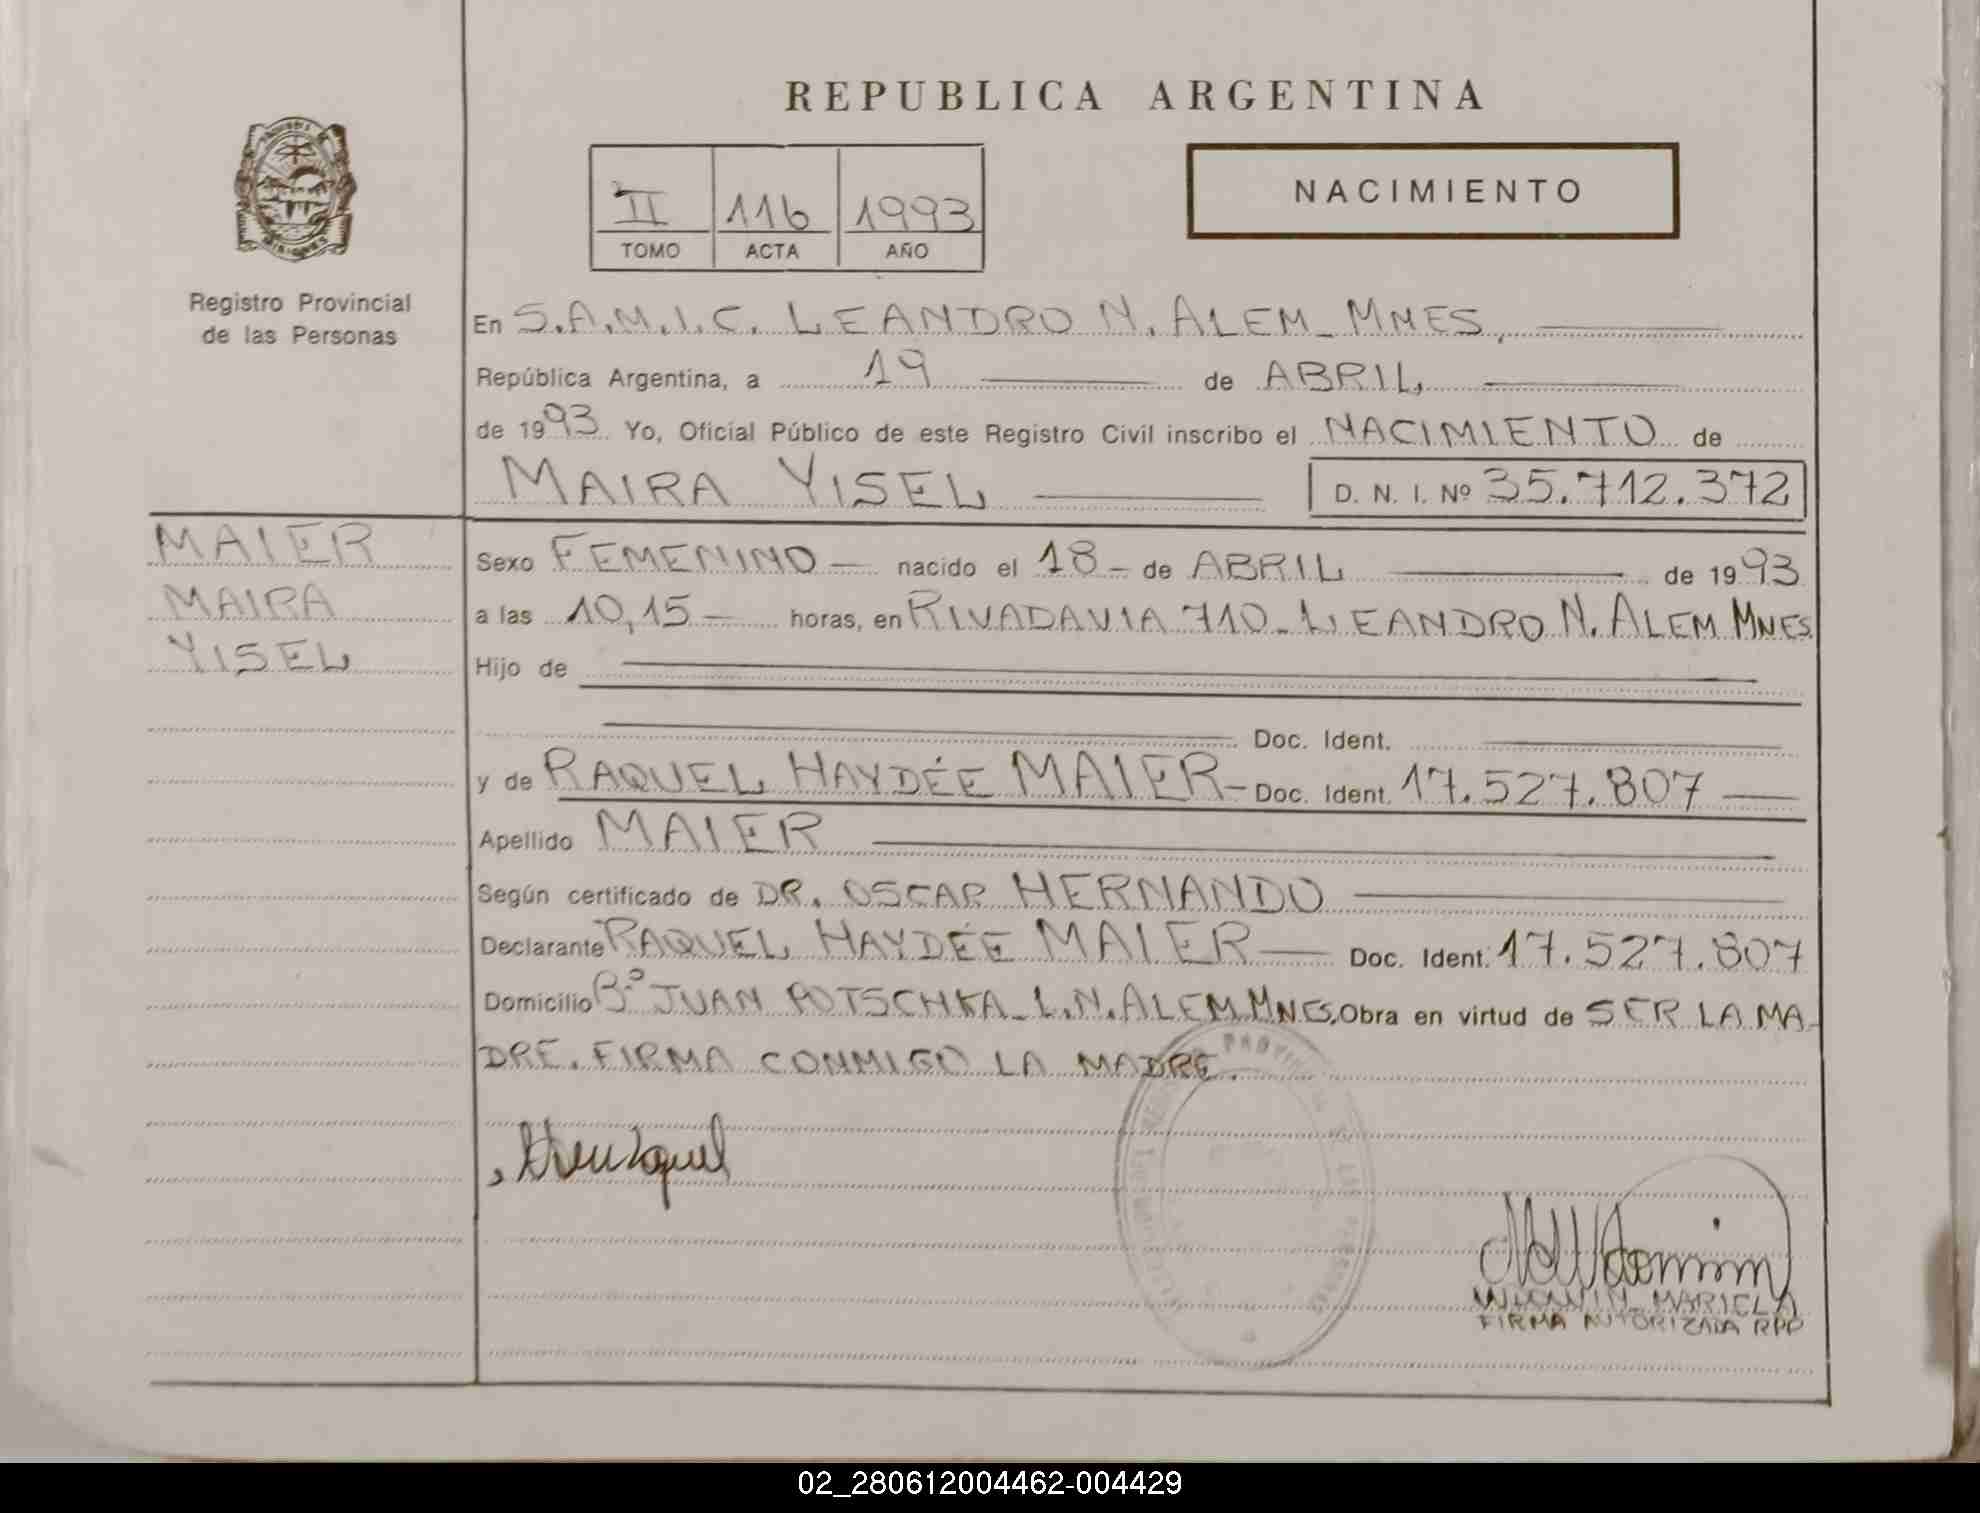 REPUBLICA ARGENTINA
NACIMIENTO
II 116 1993
TOMO ACTA AÑO
Registro Provincial
de las Personas
En S.A.M.I.C. LEANDRO N. ALEM_MNES,
República Argentina, a 19 de ABRIL,
de 1993 Yo, Oficial Público de este Registro Civil inscribo el NACIMIENTO de
MAIRA YISEL D. N. I. Nº 35.712.372
MAIER
MAIRA
YISEL
Sexo FEMENINO — nacido el 18 - de ABRIL de 1993
a las 10,15 — horas, en RIVADAVIA 710_LEANDRO N. ALEM MNES.
Hijo de
Doc. Ident.
y de RAQUEL HAYDÉE MAIER - Doc. Ident. 17.527.807
Apellido MAIER
Según certificado de DR. OSCAR HERNANDO
Declarante RAQUEL HAYDÉE MAIER — Doc. Ident. 17.527.807
Domicilio Bº JUAN POTSCHKA_L.N.ALEM MNES. Obra en virtud de SER LA MA-
DRE. FIRMA CONMIGO LA MADRE.
MARIELA
FIRMA AUTORIZADA RPP
02_280612004462-004429